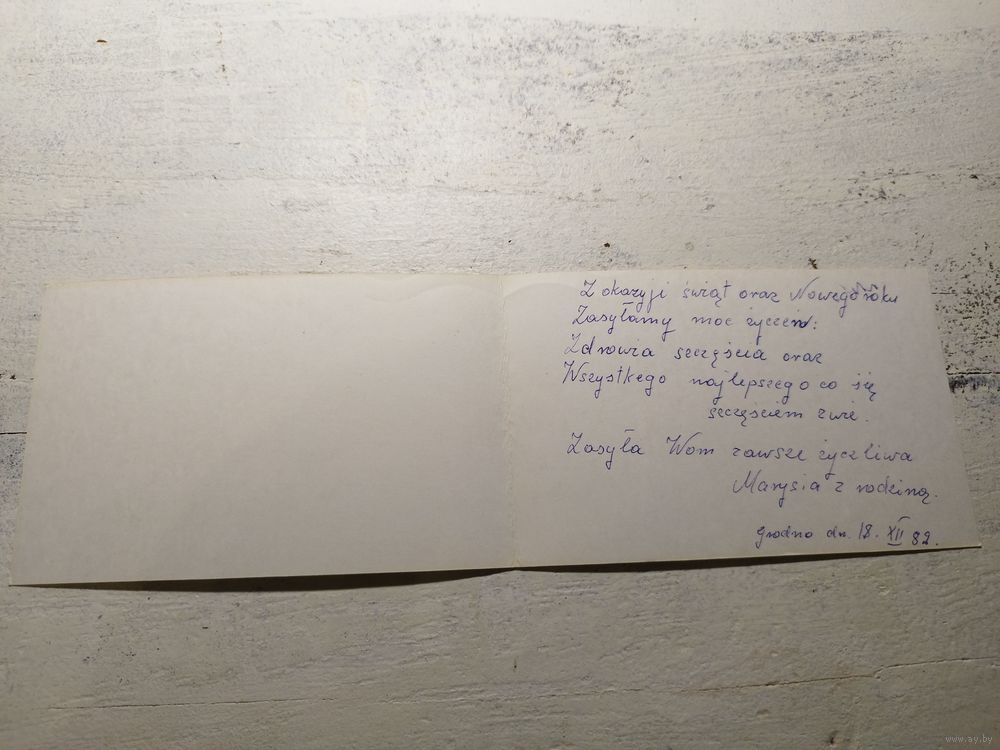 Z okazyji świąt oraz Nowego roku
Zasyłamy moc życzen:
Zdrowia szczęścia oraz
Wszystkego najlepszego co się
szczęściem zwie.
Zasyła Wom zawsze życzliwa
Marysia z rodziną.
Grodno dn. 18. XII 82.
www.ay.by